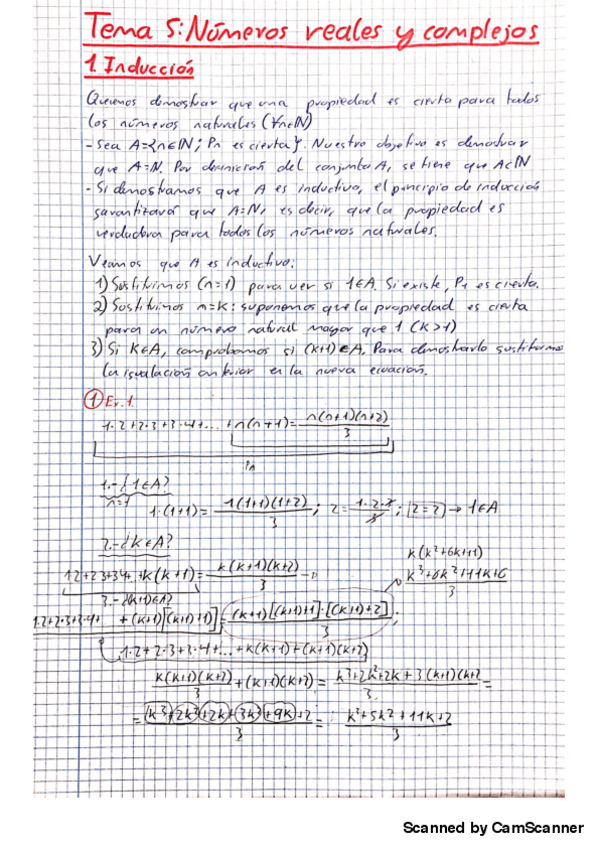 Tema 5: Números reales y complejos
1. Inducción
Queremos demostrar que una propiedad es cierta para todos
los números naturales (∀n∈ℕ)
- Sea A={n∈ℕ; Pn es cierta}. Nuestro objetivo es demostrar
que A=ℕ. Por definición del conjunto A, se tiene que A⊂ℕ
- Si demostramos que A es inductivo, el principio de inducción
garantizará que A=ℕ, es decir, que la propiedad es
verdadera para todos los números naturales.
Veamos que A es inductivo:
1) Sustituimos (n=1) para ver si 1∈A. Si existe, P1 es cierta.
2) Sustituimos n=k: suponemos que la propiedad es cierta
para un número natural mayor que 1 (k>1)
3) Si k∈A, comprobamos si (k+1)∈A. Para demostrarlo sustituimos
la igualación anterior en la nueva ecuación.
① Ex.1
1·2+2·3+3·4+...+n(n+1)= n(n+1)(n+2)/3
Pn
1.- ¿1∈A?
n=1
1·(1+1)= 1(1+1)(1+2)/3 ; 2= 1·2·3/3 ; 2=2 → 1∈A
2.- ¿k∈A?
1·2+2·3+3·4+...+k(k+1)= k(k+1)(k+2)/3
k(k²+6k+11)
k³+6k²+11k+6/3
3.- ¿(k+1)∈A?
1·2+2·3+3·4+...+(k+1)[(k+1)+1]= (k+1)[(k+1)+1]·[(k+1)+2]/3 ;
1·2+2·3+3·4+...+k(k+1)+(k+1)(k+2)
k(k+1)(k+2)/3 +(k+1)(k+2)= k³+2k²+2k+3(k+1)(k+2)/3 =
= k³+2k²+2k+3k²+9k+2/3 = k³+5k²+11k+2/3
Scanned by CamScanner